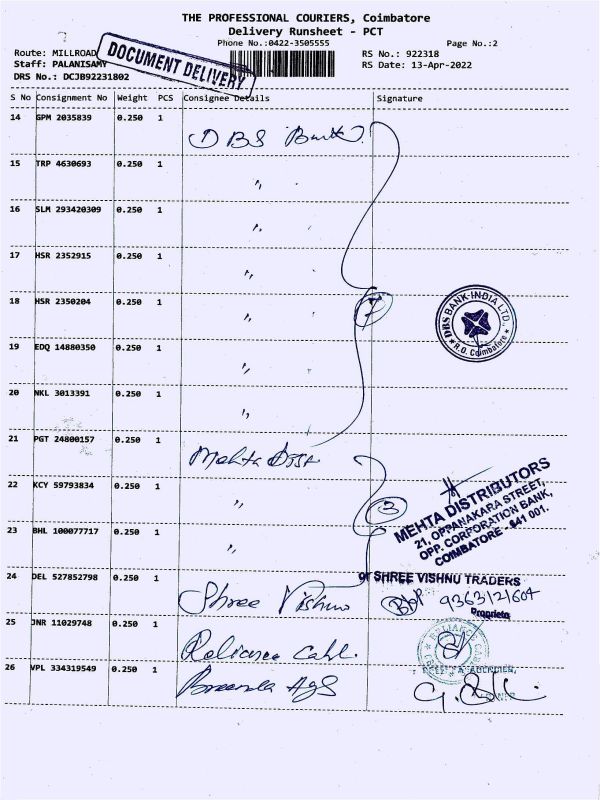 THE PROFESSIONAL COURIERS, Coimbatore
Delivery Runsheet - PCT
Phone No.:0422-3505555
Page No.:2
Route: MILLROAD
RS No.: 922318
Staff: PALANISAMY
RS Date: 13-Apr-2022
DRS No.: DCJB92231802
DOCUMENT DELIVERY
S No Consignment No Weight PCS Consignee Details Signature
14 GPM 2035839 0.250 1 DBS Bank
15 TRP 4630693 0.250 1 "
16 SLM 293420309 0.250 1 "
17 HSR 2352915 0.250 1 "
18 HSR 2350204 0.250 1 " 7
DBS BANK INDIA LTD.,
R.O. Coimbatore
19 EDQ 14880350 0.250 1 "
20 NKL 3013391 0.250 1 "
21 PGT 24800157 0.250 1 Mehta
22 KCY 59793834 0.250 1 " 3
MEHTA DISTRIBUTORS
21, OPPANAKARA STREET,
OPP. CORPORATION BANK,
COIMBATORE - 641 001.
23 BHL 100077717 0.250 1 "
24 DEL 527852798 0.250 1 Shree Vishnu
or SHREE VISHNU TRADERS
9363121604
Proprietor
25 JNR 11029748 0.250 1 Reliance
26 VPL 334319549 0.250 1